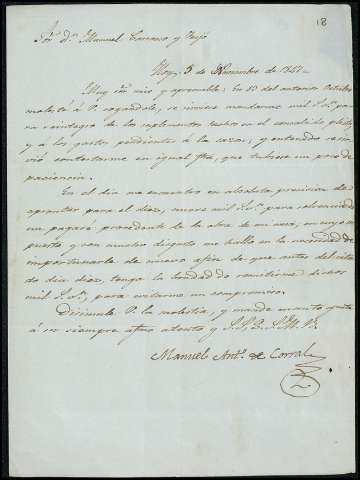 18
Sor. Dn. Manuel y
5 de Diciembre de 1847
Muy Sor. mio y apreciable: En 10 del anterior Octubre
molesté á V. rogandole, se sirviera mandarme mil rs. vn. para
reintegro de los suplementos hechos en el concluido pleito
y á los gastos pendientes á la sazon; y entonces se sir
vió contestarme en igual fha, que tubiese un poco de
paciencia.
En el dia me encuentro en absoluta precision de
aprontar para el diez, nueve mil rs. vn. para
un pagaré procedente de la obra de mi casa, en cuyo
puesto y con mucho disgusto me hallo en la necesidad de
importunarle de nuevo afin de que antes del cita
do dia diez, tenga la bondad de remitirme dichos
mil rs. vn., para evitarme un compromiso.
Disimule V. la molestia, y mande cuanto guste
á su siempre afmo atento y S.S.Q.S.M.B.
Manuel Anto. de Corral